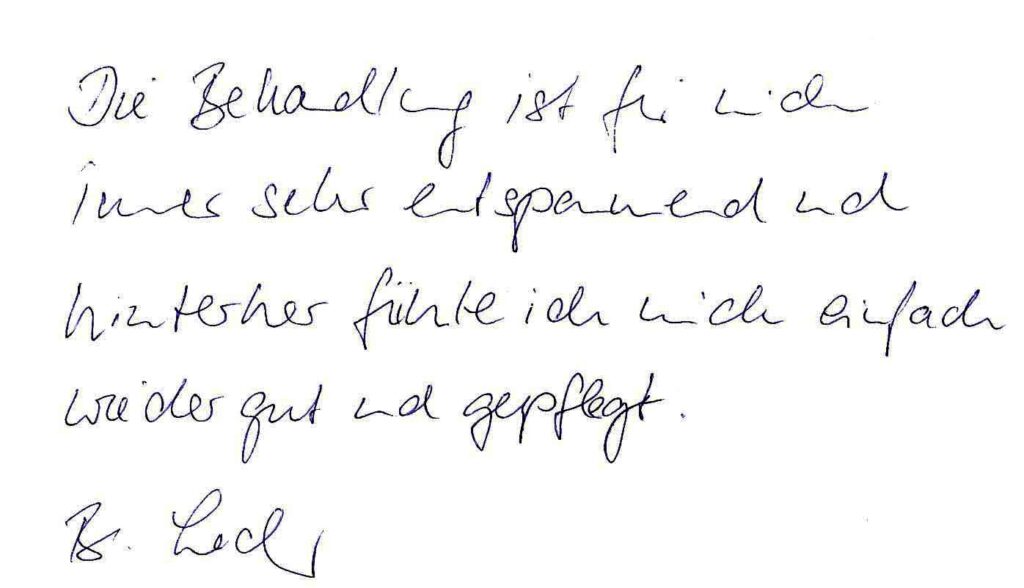 Die Behandlung ist für mich
immer sehr entspannend und
hinterher fühle ich mich einfach
wieder gut und gepflegt.